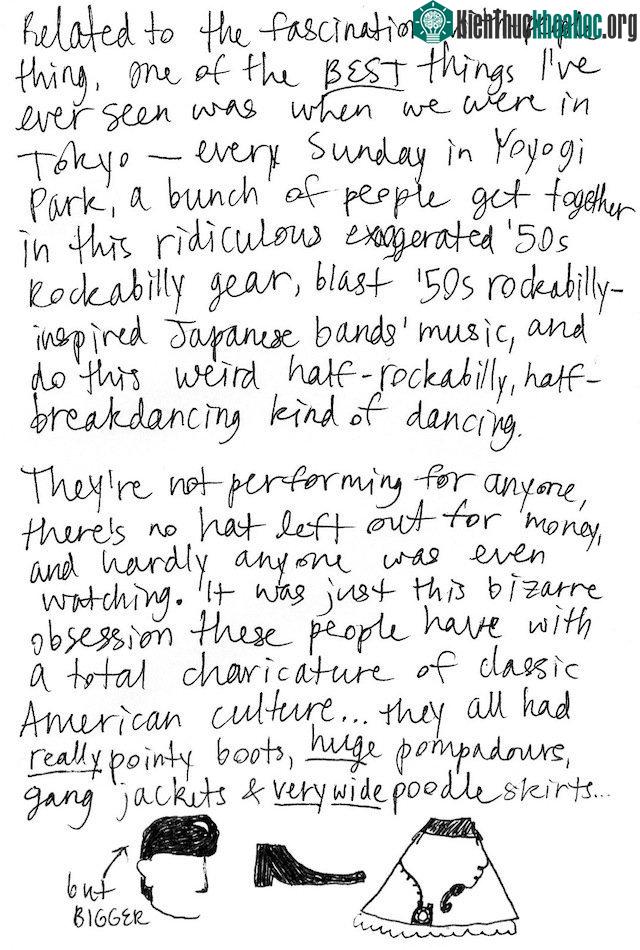 KienThucKhoaHoc.org
Related to the fascination
thing, one of the BEST things I've
ever seen was when we were in
Tokyo — every Sunday in Yoyogi
Park, a bunch of people get together
in this ridiculous exaggerated '50s
Rockabilly gear, blast '50s rockabilly-
inspired Japanese bands' music, and
do this weird half-rockabilly, half-
breakdancing kind of dancing.
They're not performing for anyone,
there's no hat left out for money,
and hardly anyone was even
watching. It was just this bizarre
obsession these people have with
a total charicature of classic
American culture... they all had
really pointy boots, huge pompadours,
gang jackets & very wide poodle skirts...
but
BIGGER